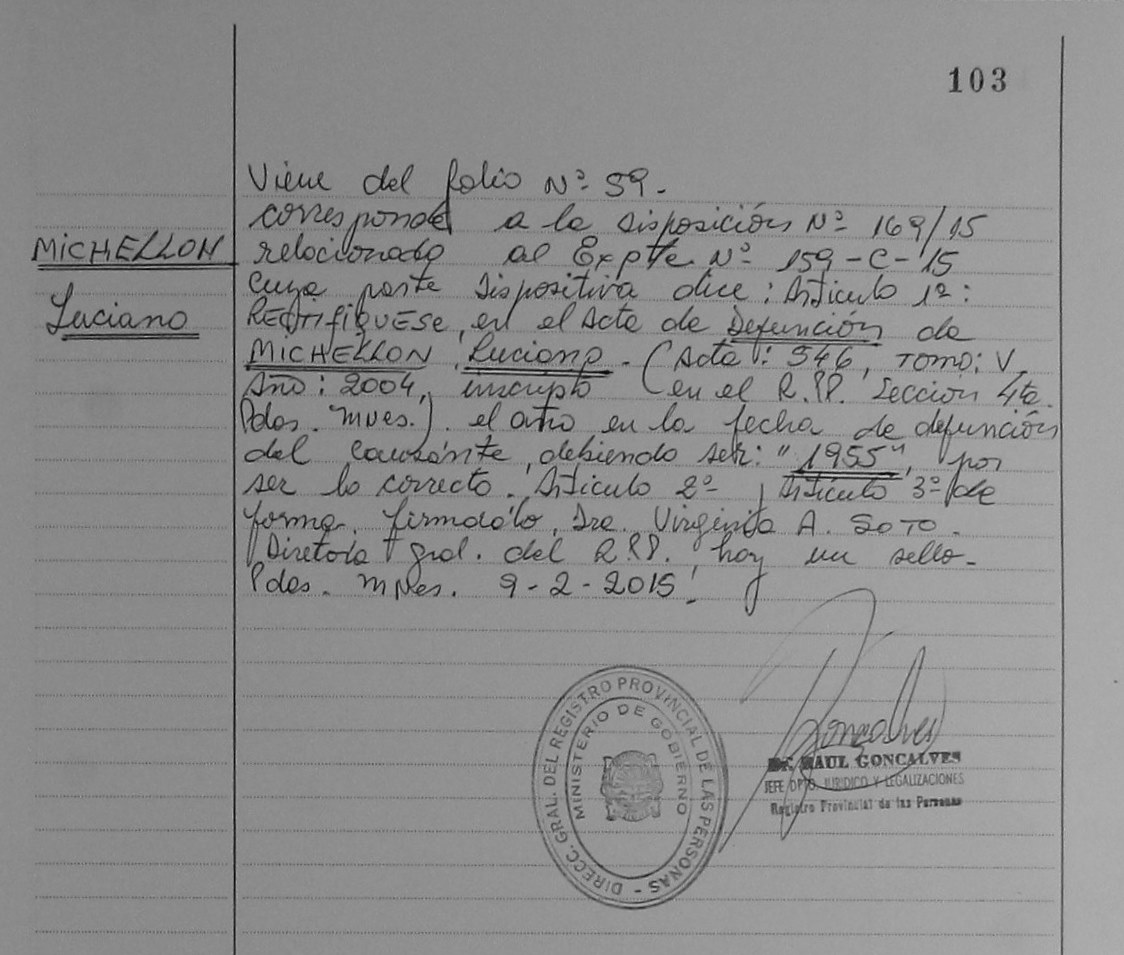 103
Viene del folio Nº 59.
corresponde a la disposición Nº 169/15
MICHELLON
relacionado al Expte Nº 159-C-15
Luciano
Cuya parte dispositiva dice: Articulo 1º:
RECTIFIQUESE, en el Acta de Defunción de
MICHELLON, Luciano. (Acta: 546, Tomo: V,
Año: 2004, inscripto (en el R.PP. Sección 4ta.
Pdas. Mnes.). el año en la fecha de defunción
del causante, debiendo ser: "1955", por
ser lo correcto. Articulo 2º, Articulo 3º de
forma. firmdolo, Dra. Virginia A. SOTO.
Diretora Gral. del R.PP. hay un sello.
Pdas. Mnes. 9-2-2015.
DIRECC. GRAL. DEL REGISTRO PROVINCIAL DE LAS PERSONAS -
MINISTERIO DE GOBIERNO
Goncalves
Dr. RAUL GONCALVES
JEFE DPTO. JURIDICO Y LEGALIZACIONES
Registro Provincial de las Personas